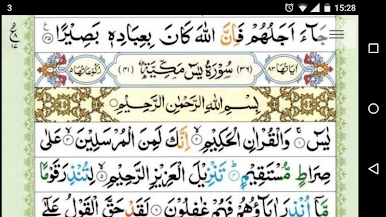 3 15:28
جَآءَ اَجَلُهُمْ فَاِنَّ اللّٰهَ كَانَ بِعِبَادِهٖ بَصِيْرًا
اٰيَاتُهَا ٨٣ (٣٦) سُوْرَةُ يٰسٓ مَكِّيَّةٌ (٤١) رُكُوْعَاتُهَا ٥
بِسْمِ اللّٰهِ الرَّحْمٰنِ الرَّحِيْمِ
يٰسٓ ١ وَالْقُرْاٰنِ الْحَكِيْمِ ٢ اِنَّكَ لَمِنَ الْمُرْسَلِيْنَ ٣ عَلٰى
صِرَاطٍ مُّسْتَقِيْمٍ ٤ تَنْزِيْلَ الْعَزِيْزِ الرَّحِيْمِ ٥ لِتُنْذِرَ قَوْمًا
مَّاۤ اُنْذِرَ اٰبَآؤُهُمْ فَهُمْ غٰفِلُوْنَ ٦ لَقَدْ حَقَّ الْقَوْلُ عَلٰۤى